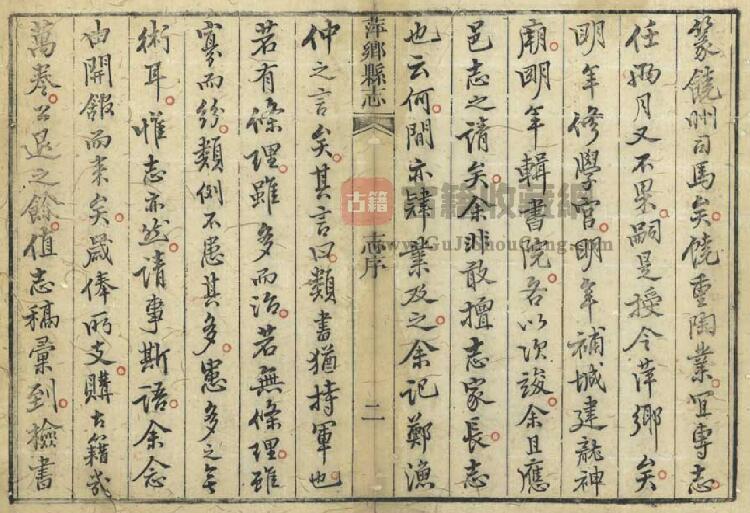 篆饒州司馬矣饒重陶業宜專志
任彌月又不果嗣是授今萍鄉矣
明年修學宮明年補城建龍神
廟明年輯書院各以次竣余且應
邑志之請矣余非敢擅志家長志
也云何間亦肄業及之余記鄭漁
萍鄉縣志
志序
二
仲之言矣其言曰類書猶持軍也
若有條理雖多而治若無條理雖
寡而紛類例不患其多患多之無
術耳惟志亦然請事斯語余念
由開館而來矣歲俸所支購古籍幾
萬卷公退之餘值志稿彙到檢書
古籍
古籍收藏網
www.GuJiShouCang.com